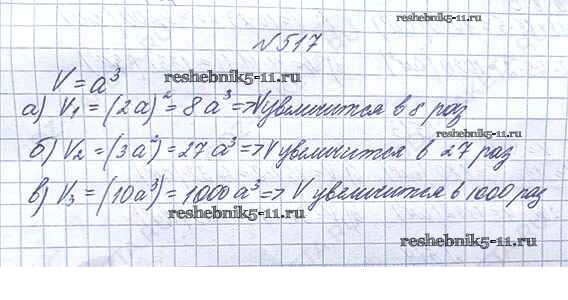 reshebnik5-11.ru
№517
V=a³
reshebnik5-11.ru
а) V₁ = (2a)² = 8a³ => V увеличится в 8 раз
б) V₂ = (3a²) = 27a³ => V увеличится в 27 раз
в) V₃ = (10a³) = 1000a³ => V увеличится в 1000 раз
reshebnik5-11.ru
reshebnik5-11.ru